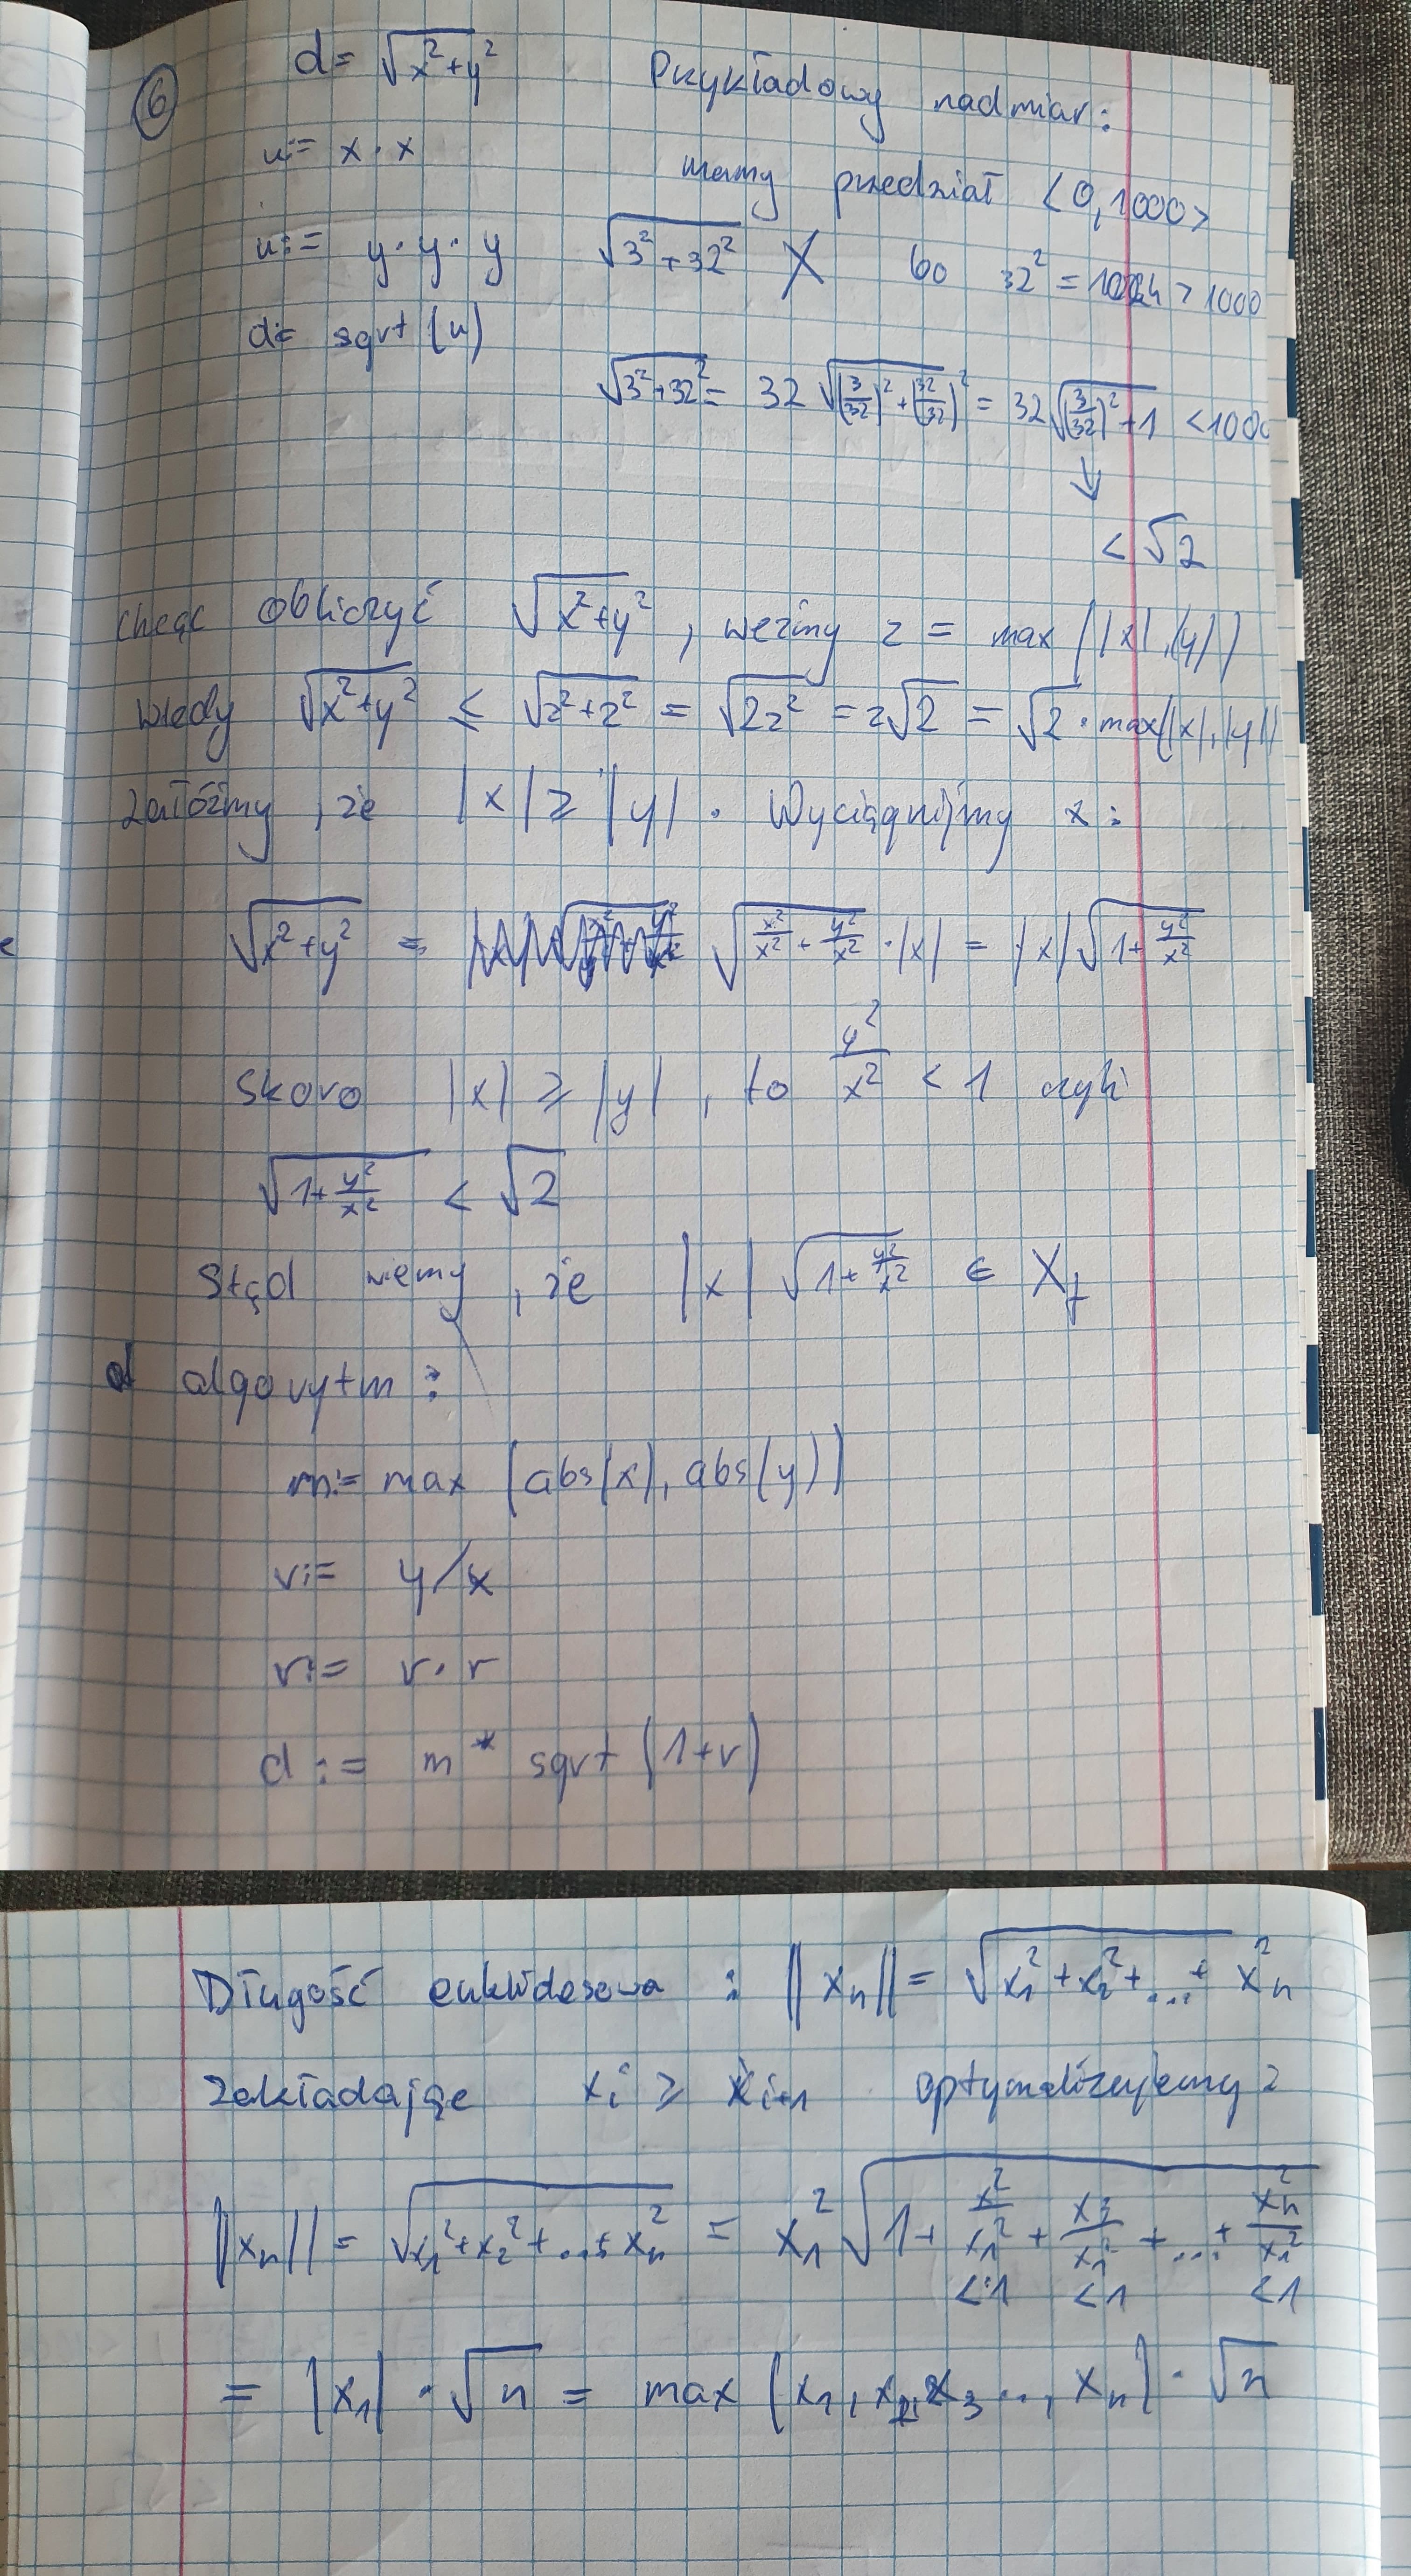 6
d = √(x²+y²) Przykładowy nadmiar:
u:= x·x mamy przedział <0,1000>
u:= y·y·y √(3²+32²) X bo 32² = 1024 > 1000
d:= sqrt(u)
√(3²+32²) = 32 √((3/32)²+(32/32)²) = 32 √((3/32)²+1) < 1000
↓
< √2
chcąc obliczyć √(x²+y²), weźmy z = max(|x|,|y|)
wtedy √(x²+y²) ≤ √(z²+z²) = √(2z²) = z√2 = √2 · max(|x|,|y|)
załóżmy, że |x| ≥ |y|. Wyciągnijmy x:
√(x²+y²) = √(x²/x² + y²/x²) · |x| = |x| √(1+y²/x²)
skoro |x| ≥ |y|, to y²/x² < 1 czyli
√(1+y²/x²) < √2
Stąd wiemy, że |x| √(1+y²/x²) ∈ X_f
algorytm:
m:= max(abs(x), abs(y))
r:= y/x
r:= r·r
d:= m * sqrt(1+r)
Długość euklidesowa: ||xₙ|| = √(x₁²+x₂²+...+xₙ²)
zakładając xᵢ ≥ xᵢ₊₁ optymalizujemy:
||xₙ|| = √(x₁²+x₂²+...+xₙ²) = x₁² √(1+x²/x₁²+x₃/x₁²+...+xₙ²/x₁²)
<1 <1 <1
= |x₁| · √n = max(x₁, x₂, x₃..., xₙ) · √n